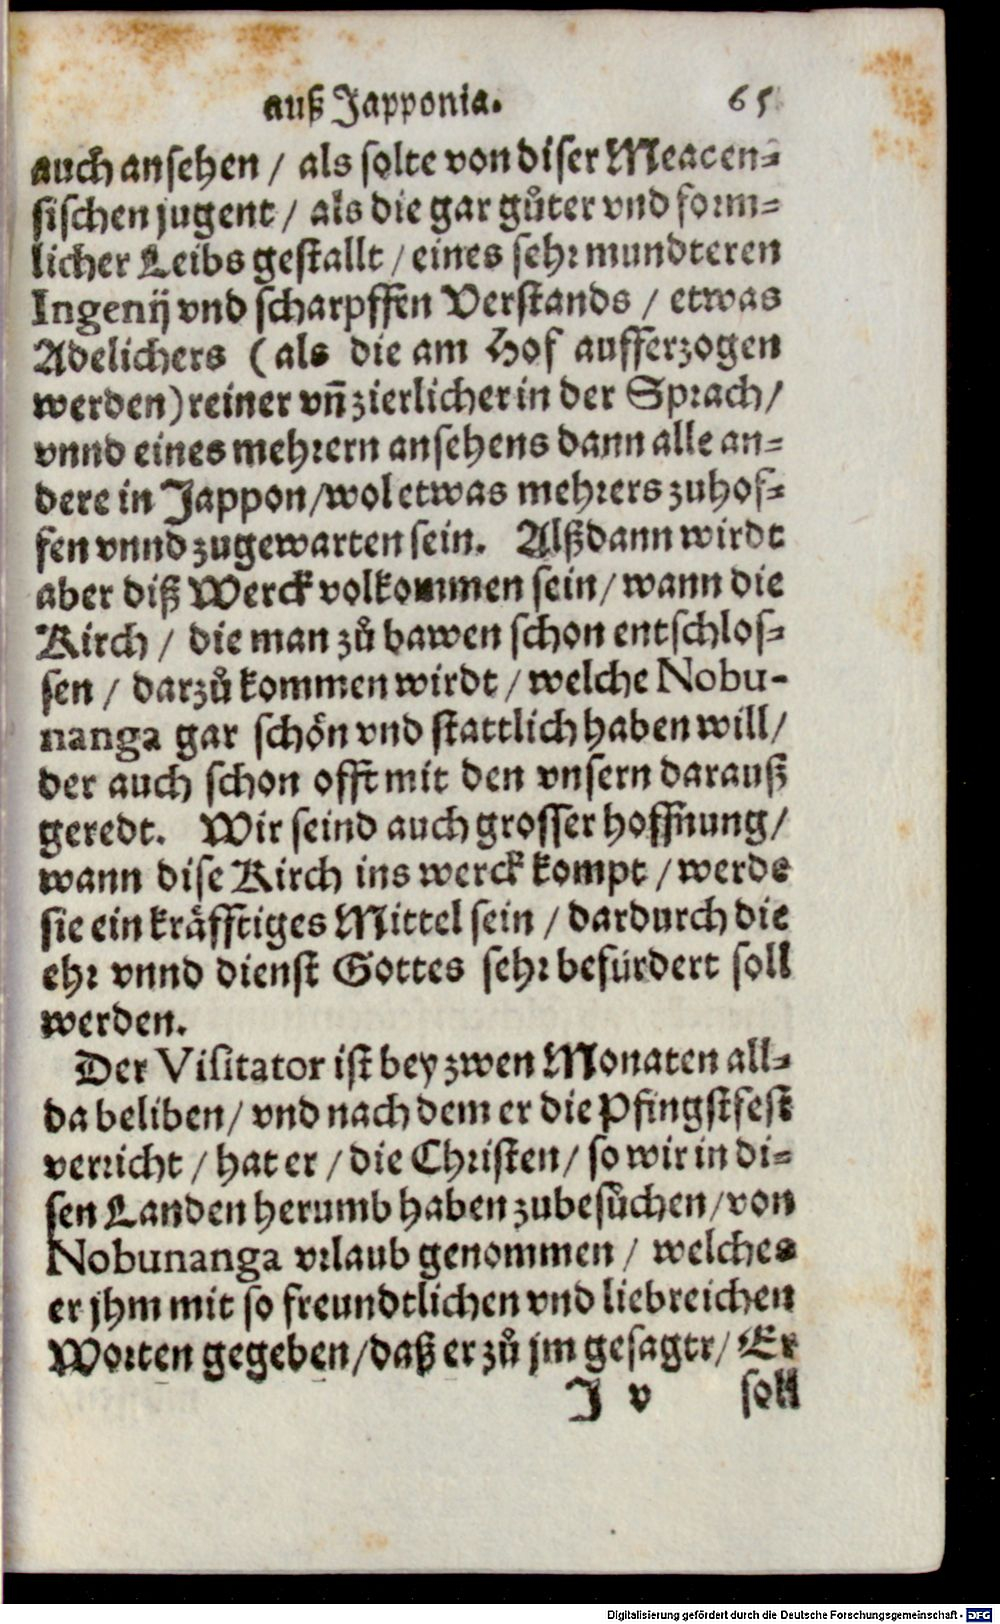 auß Japponia. 65
auch ansehen / als solte von diser Meacen-
sischen jugent / als die gar gůter vnd form-
licher Leibs gestallt / eines sehr mundteren
Ingenij vnd scharpffen Verstands / etwas
Adelichers (als die am Hof aufferzogen
werden) reiner vñ zierlicher in der Sprach/
vnnd eines mehrern ansehens dann alle an-
dere in Jappon/wol etwas mehrers zuhof-
fen vnnd zugewarten sein. Alßdann wirdt
aber diß Werck volkommen sein/ wann die
Kirch / die man zů bawen schon entschlos-
sen / darzů kommen wirdt / welche Nobu-
nanga gar schön vnd stattlich haben will/
der auch schon offt mit den vnsern darauß
geredt. Wir seind auch grosser hoffnung/
wann dise Kirch ins werck kompt / werde
sie ein kräfftiges Mittel sein / dardurch die
ehr vnnd dienst Gottes sehr befürdert soll
werden.
Der Visitator ist bey zwen Monaten all-
da beliben/ vnd nach dem er die Pfingstfest
verricht / hat er / die Christen/ so wir in di-
sen Landen herumb haben zubesůchen/von
Nobunanga vrlaub genommen / welches
er jhm mit so freundtlichen vnd liebreichen
Worten gegeben/daß er zů jm gesagtt/ Er
J v soll
Digitalisierung gefördert durch die Deutsche Forschungsgemeinschaft - DFG